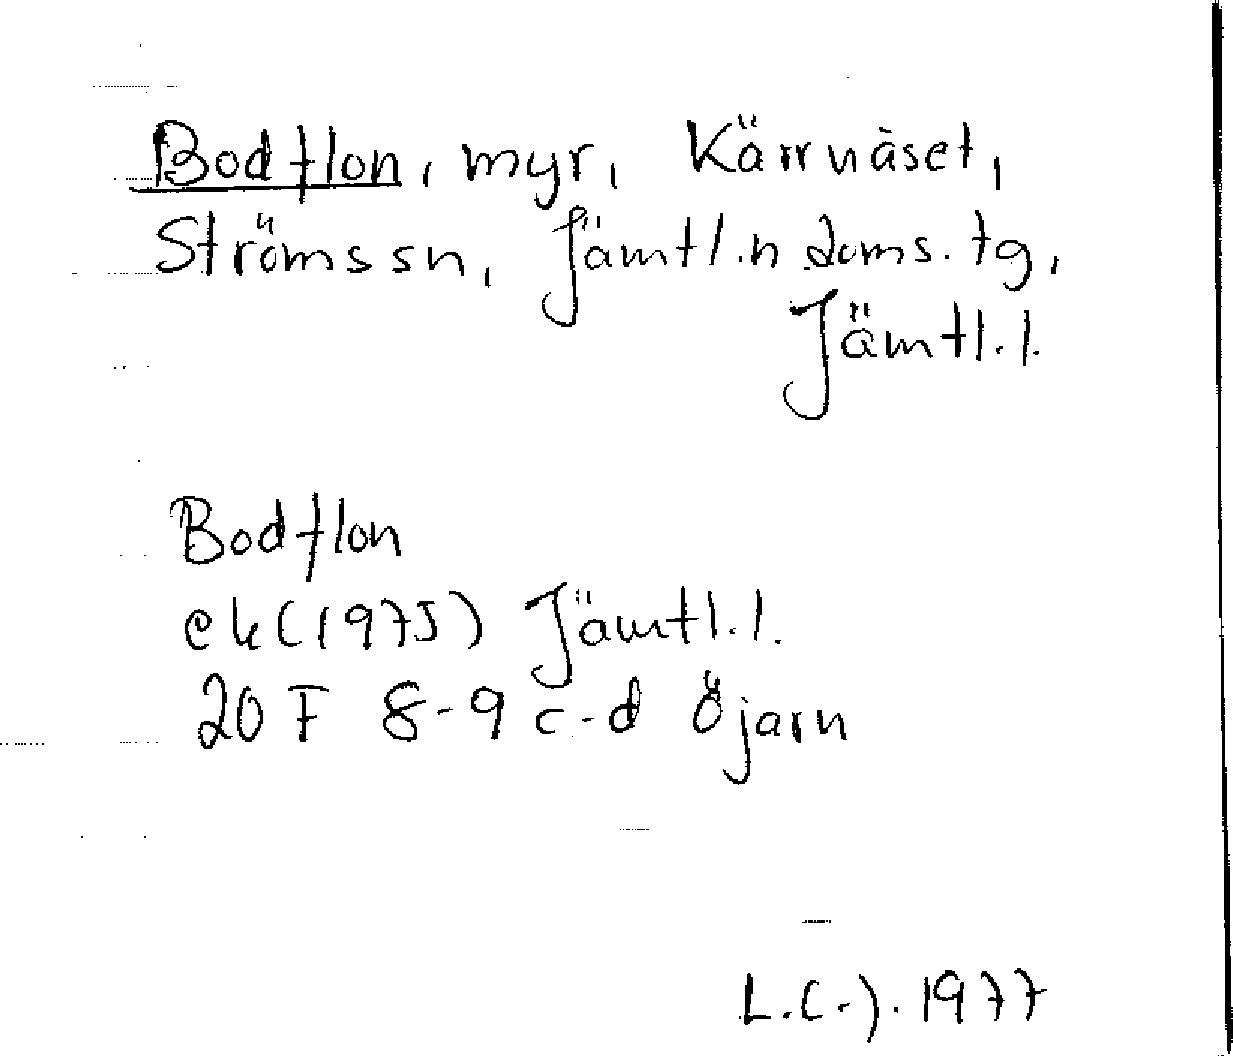 Bodflon, myr, Kärrnäset,
Ströms sn, Jämtl.n doms. tg,
Jämtl.l.
Bodflon
ek (1975) Jämtl.l.
20 F 8-9 c-d Öjarn
L.(-). 1977